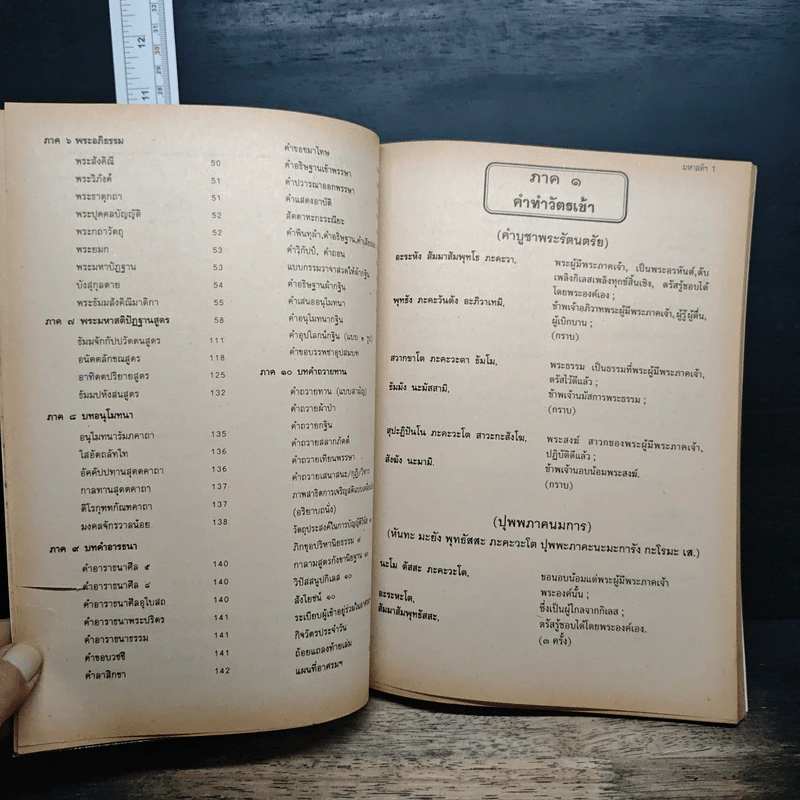 12
11
31
30
29
28
ภาค ๖ พระอภิธรรม
พระสังคิณี 50
พระวิภังค์ 51
พระธาตุกถา 51
พระปุคคลบัญญัติ 52
พระกถาวัตถุ 52
พระยมก 53
พระมหาปัฏฐาน 53
บังสุกุลตาย 54
พระธัมมสังคิณีมาติกา 55
ภาค ๗ พระมหาสติปัฏฐานสูตร 58
ธัมมจักกัปปวัตตนสูตร 111
อนัตตลักขณสูตร 118
อาทิตตปริยายสูตร 125
ธัมมปหังสนสูตร 132
ภาค ๘ บทอนุโมทนา
อนุโมทนารัมภคาถา 135
โสอัตถลัทโท 136
อัคคัปปทานสุตตคาถา 136
กาลทานสุตตคาถา 137
ติโรกุฑฑกัณฑคาถา 137
มงคลจักรวาลน้อย 138
ภาค ๙ บทคำอาราธนา
คำอาราธนาศีล ๕ 140
คำอาราธนาศีล ๘ 140
คำอาราธนาศีลอุโบสถ 140
คำอาราธนาพระปริตร 141
คำอาราธนาธรรม 141
คำขอบวชชี 141
คำลาสิกขา 142
คำขอขมาโทษ
คำอธิษฐานเข้าพรรษา
คำปวารณาออกพรรษา
คำแสดงอาบัติ
สัตตาหะกะระณียะ
คำพินทุผ้า,คำอธิษฐาน,
คำวิกัปป์, คำถอน
แบบกรรมวาจาสวดให้ผ้ากฐิน
คำอธิษฐานผ้ากฐิน
คำเสนออนุโมทนา
คำอนุโมทนากฐิน
คำอุปโลกน์กฐิน (แบบ ๒ รูป)
คำขอบรรพชาอุปสมบท
ภาค ๑๐ บทคำถวายทาน
คำถวายทาน (แบบสามัญ)
คำถวายผ้าป่า
คำถวายกฐิน
คำถวายสลากภัตต์
คำถวายเทียนพรรษา
คำถวายเสนาสนะ/กุฏิ/วิหาร
ภาพสาธิตการเจริญสติแบบเคลื่อนไหว
(อริยาบถนั่ง)
วัตถุประสงค์ในการบัญญัติวินัย
ภิกขุอปริหานิยธรรม ๗
กาลามสูตรกังขานิยฐาน ๑๐
วิปัสสนูปกิเลส ๑๐
สังโยชน์ ๑๐
ระเบียบผู้เข้าอยู่ร่วมใน
กิจวัตรประจำวัน
ถ้อยแถลงท้ายเล่ม
แผนที่อาศรมฯ
มหาสติฯ 1
ภาค ๑
คำทำวัตรเช้า
(คำบูชาพระรัตนตรัย)
อะระหัง สัมมาสัมพุทโธ ภะคะวา, พระผู้มีพระภาคเจ้า, เป็นพระอรหันต์,ดับ
เพลิงกิเลสเพลิงทุกข์สิ้นเชิง, ตรัสรู้ชอบได้
โดยพระองค์เอง ;
พุทธัง ภะคะวันตัง อะภิวาเทมิ, ข้าพเจ้าอภิวาทพระผู้มีพระภาคเจ้า,ผู้รู้ผู้ตื่น,
ผู้เบิกบาน ;
(กราบ)
สวากขาโต ภะคะวะตา ธัมโม, พระธรรม เป็นธรรมที่พระผู้มีพระภาคเจ้า,
ตรัสไว้ดีแล้ว ;
ธัมมัง นะมัสสามิ. ข้าพเจ้านมัสการพระธรรม ;
(กราบ)
สุปะฏิปันโน ภะคะวะโต สาวะกะสังโฆ, พระสงฆ์ สาวกของพระผู้มีพระภาคเจ้า,
ปฏิบัติดีแล้ว ;
สังฆัง นะมามิ. ข้าพเจ้านอบน้อมพระสงฆ์.
(กราบ)
(ปุพพภาคนมการ)
(หันทะ มะยัง พุทธัสสะ ภะคะวะโต ปุพพะภาคะนะมะการัง กะโรมะ เส.)
นะโม ตัสสะ ภะคะวะโต, ขอนอบน้อมแด่พระผู้มีพระภาคเจ้า
พระองค์นั้น ;
อะระหะโต, ซึ่งเป็นผู้ไกลจากกิเลส ;
สัมมาสัมพุทธัสสะ, ตรัสรู้ชอบได้โดยพระองค์เอง.
(๓ ครั้ง)